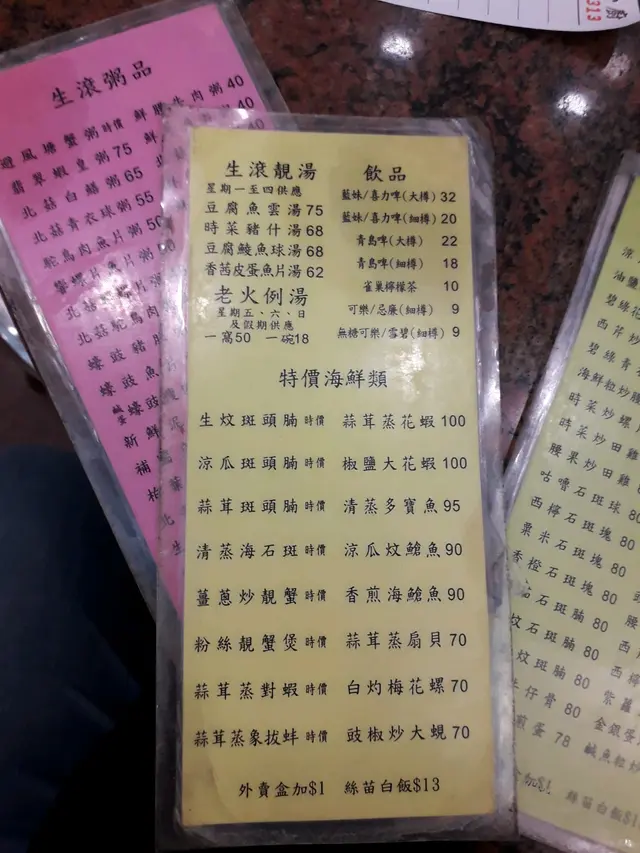 生滾粥品
避風塘蟹粥時價 鮮腰牛肉粥40
翡翠蝦皇粥75
北菇白鱔粥65
北菇青衣球粥55
鴕鳥肉魚片粥50
響螺片魚片粥
北菇螺片
北菇鴕鳥肉
蠔豉豬
蠔豉魚
鹹蛋蠔豉
新鮮
生滾靚湯
星期一至四供應
豆腐魚雲湯75
時菜豬什湯68
豆腐鯪魚球湯68
香茜皮蛋魚片湯62
老火例湯
星期五、六、日
及假期供應
一窩50 一碗18
飲品
藍妹/喜力啤(大樽) 32
藍妹/喜力啤(細樽) 20
青島啤(大樽) 22
青島啤(細樽) 18
雀巢檸檬茶 10
可樂/忌廉(細樽) 9
無糖可樂/雪碧(細樽) 9
特價海鮮類
生炆斑頭腩時價 蒜茸蒸花蝦100
涼瓜斑頭腩時價 椒鹽大花蝦100
蒜茸斑頭腩時價 清蒸多寶魚95
清蒸海石斑時價 涼瓜炆鯧魚90
薑蔥炒靚蟹時價 香煎海鯧魚90
粉絲靚蟹煲時價 蒜茸蒸扇貝70
蒜茸蒸對蝦時價 白灼梅花螺70
蒜茸蒸象拔蚌時價 豉椒炒大蜆70
外賣盒加$1 絲苗白飯$13
油鹽
碧綠花
西芹炒
碧綠青
海鮮粒炒
時菜炒螺片
時菜炒田雞
腰果炒田雞
咕嚕石斑球80
西檸石斑塊80
粟米石斑塊80
香橙石斑塊80
石斑腩80
炆石斑腩80
炆斑腩80
牛仔骨80
煎蛋 78 鹹魚粒炒
盒加$1 絲苗白飯$1
313